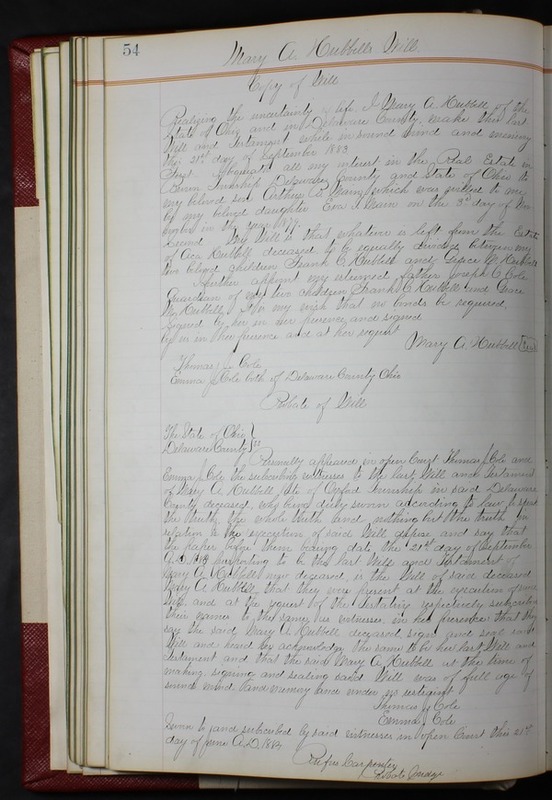 54
Mary A. Hubbell's Will
Copy of Will
Realizing the uncertainty of life, I Mary A. Hubbell of the
State of Ohio and in Delaware County, make this last
Will and Testament while in sound mind and memory
this 21st day of September 1883
First I bequeath all my interest in the Real Estate in
Township Delaware County and State of Ohio to
my beloved son Arthur B. Main, which was willed to me
by my beloved daughter Eva I. Main on the 3rd day of
in the year 1879.
Second My Will is that whatever is left from the Estate
of Hubbell deceased, to be equally divided between my
two beloved children Frank C. Hubbell and Grace M. Hubbell
I further appoint my esteemed father Joseph C. Cole
Guardian of my two children Frank C. Hubbell and Grace
M. Hubbell, It is my wish that no bonds be required,
signed by her in our presence and signed
by us in her presence and at her request
Mary A. Hubbell Seal
Thomas J. Cole
Emma J. Cole both of Delaware County Ohio
Probate of Will
The State of Ohio
Delaware County ss
Personally appeared in open Court Thomas J. Cole and
Emma J. Cole the subscribing witnesses to the last Will and Testament
of Mary A. Hubbell, late of Oxford Township in said Delaware
County deceased, who being duly sworn according to law to speak
the truth, the whole truth and nothing but the truth in
relation to the execution of said Will depose and say that
the paper before them bearing date the 21st day of September
A.D. 1883 purporting to be the last Will and Testament of
Mary A. Hubbell now deceased, is the Will of said deceased
Mary A. Hubbell, that they were present at the execution of said
Will, and at the request of the Testatrix respectively subscribed
their names to the same, as witnesses, in her presence; that they
say the said Mary A. Hubbell deceased, sign and seal said
Will and heard her acknowledge the same to be her last Will and
Testament and that the said Mary A. Hubbell at the time of
making, signing and sealing said Will was of full age of
sound mind, and memory and under no restraint
Thomas J. Cole
Emma J. Cole
Sworn to and subscribed by said witnesses in open Court this 21st
day of June A.D. 188
Rufus Carpenter
Probate Judge